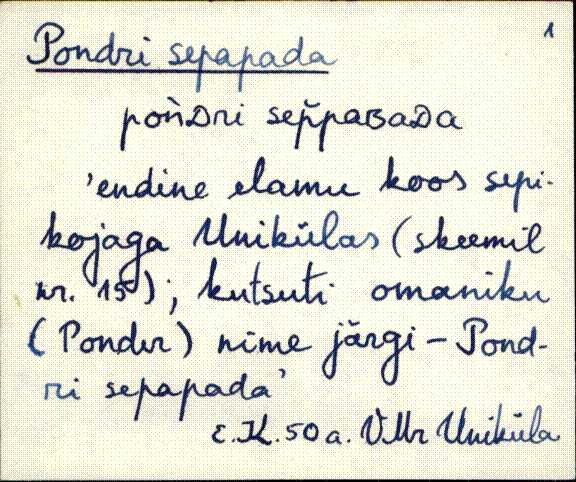 1
Pondri sepapada
poǹDri sep̌paʙaDa
'endine elamu koos sepi-
kojaga Unikülas (skeemil
nr. 15); kutsuti omaniku
(Ponder) nime järgi - Pond-
ri sepapada'
E.K. 50 a. VMr Uniküla